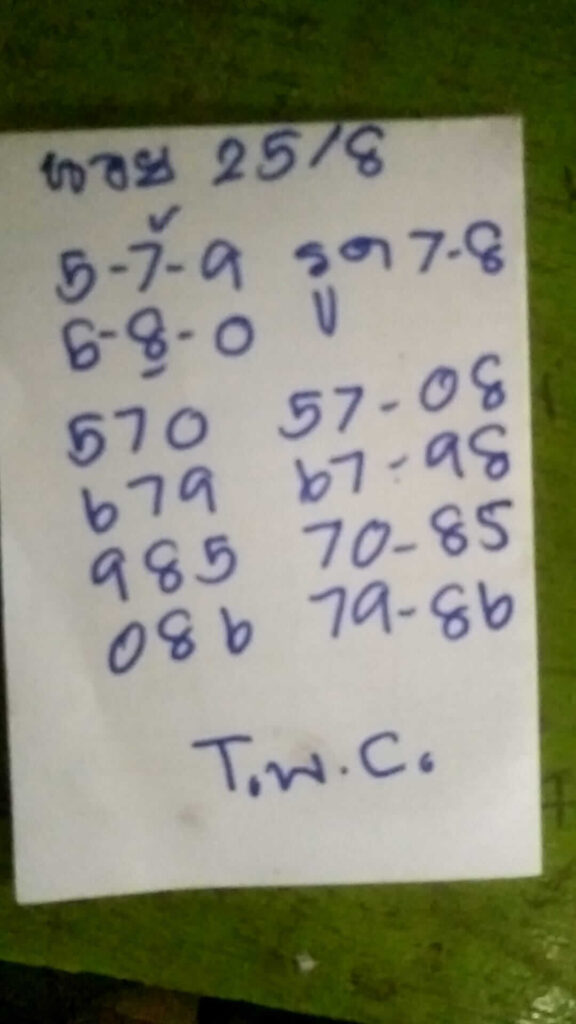 ฮานอย 25/8
5-7-9 รูด 7-8
6-8-0 ป
570 57-08
679 67-98
985 70-85
086 79-86
T.พ.C.